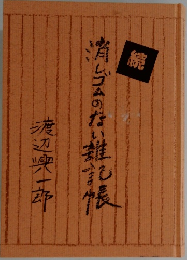 続
消しゴムのない雑記帳
渡辺興一郎